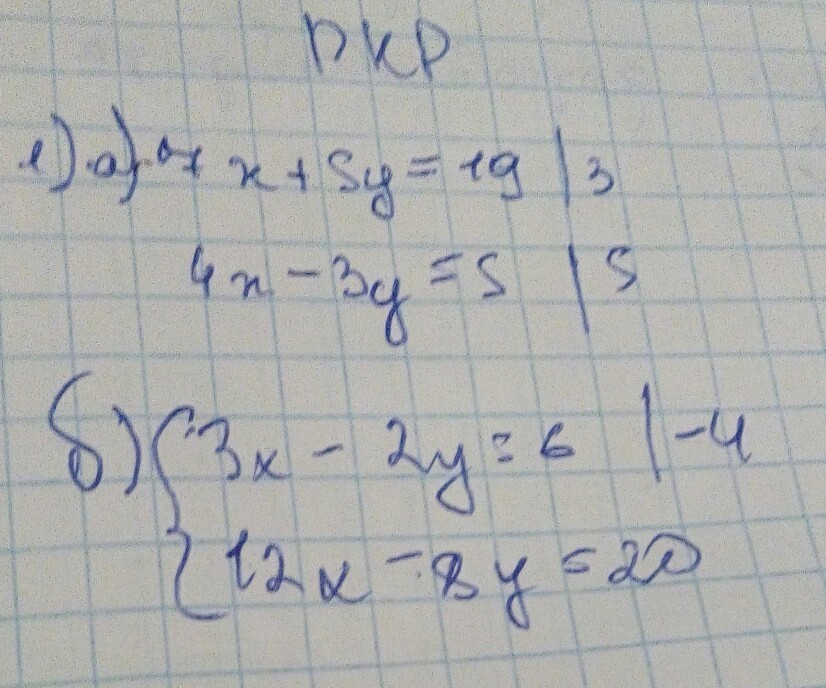 ДКР
1) а) x + 5y = 19 | 3
4x - 3y = 5 | 5
б) { 3x - 2y = 6 | -4
12x - 8y = 20